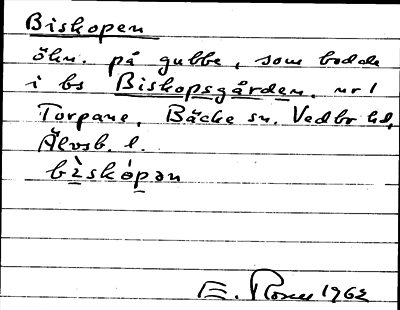 Biskopen
ökn. på gubbe, som bodde
i bs Biskopsgården, nr 1
Torpane, Bäcke sn. Vedbo hd,
Älvsb. l.
bìskópən
E. Rosell 1962